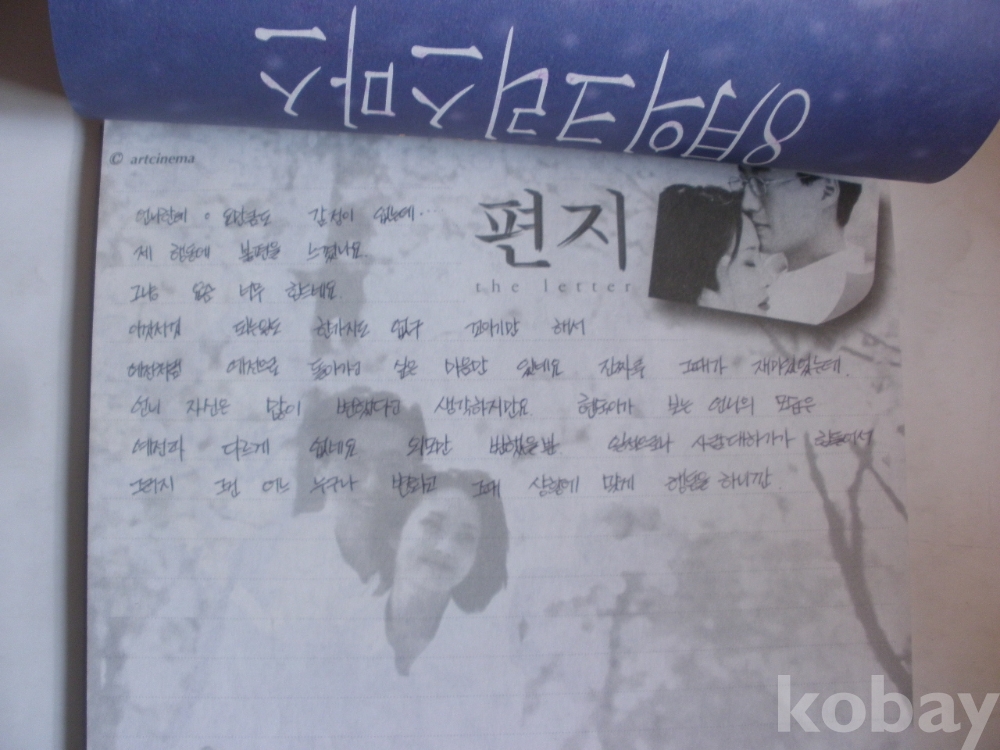 8월의크리스마스
© artcinema
편지
the letter
언니한테 감정이 없는데...
제 행동에 불편을 느꼈나요
그냥 요즘 너무 힘드네요.
한가지도 없구 꼬이기만 해서
예전처럼 예전으로 돌아가고 싶은 마음만 있네요 진짜루 그때가 재미있었는데.
언니 자신은 많이 변했다고 생각하지만요. 보는 언니의 모습은
예전과 다르게 없네요 외모만 변했을 뿐. 사람대하기가 힘들어서
그러지 그건 어느 누구나 변하고 그때 상황에 맞게 행동을 하니깐.
kobay